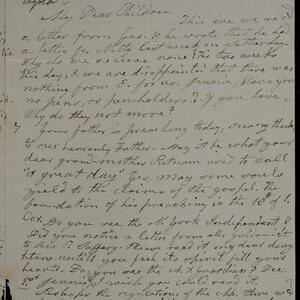 My Dear Children,
This eve we rec'd
a letter from Geo. & he wrote that he had
a letter fr. Netty last week on Saturday.
Why do we receive none its two weeks
this day, & we are disappointed that there was
nothing from E. for us. Jennie, have you
no pens, or pen-holders? If you have,
Why do they not move?
Your father is preaching today, many thanks
to our heavenly Father. May it be what your
dear grand-mother Putnam used to call
"A great day" Yes, may some souls
yield to the claims of the gospel. The
foundation of his preaching in the 15th of 1.
Cor. Do you see the N. York Independent &
Did you notice a letter from
to Rev. P. Please read it my dear daugh
ters untill you feel its spirit fill your
hearts. Do you see the N. Y. Dec.
Jennie, I wish you could read it.
Perhaps the regulations of the there w